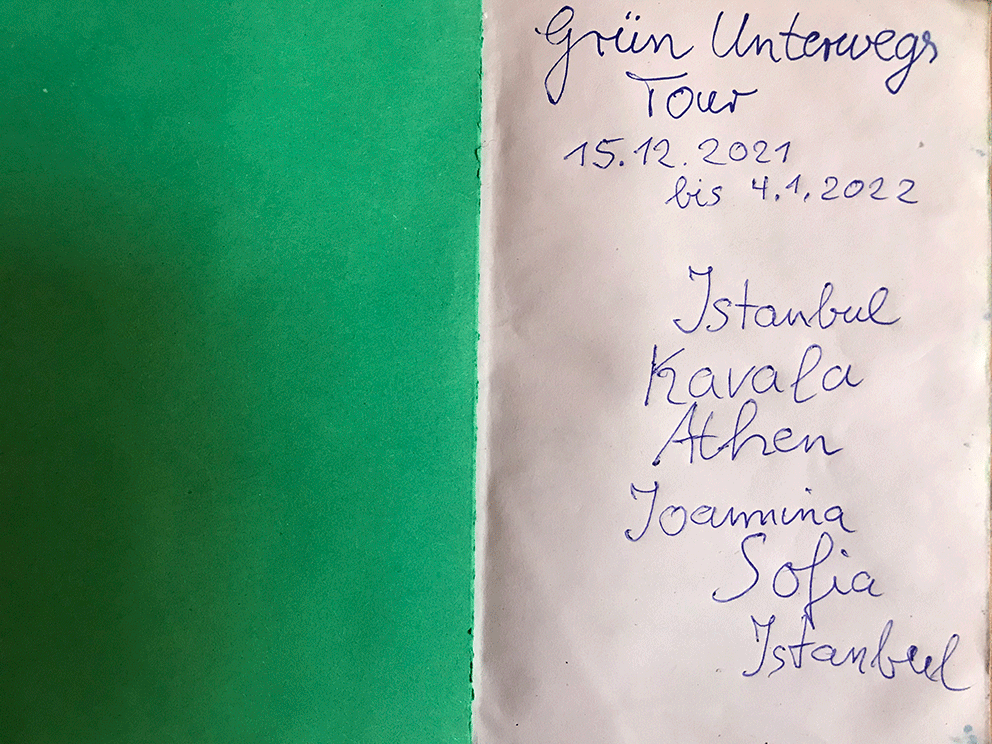 Grün Unterwegs
Tour
15.12.2021
bis 4.1.2022
Istanbul
Kavala
Athen
Ioannina
Sofia
Istanbul